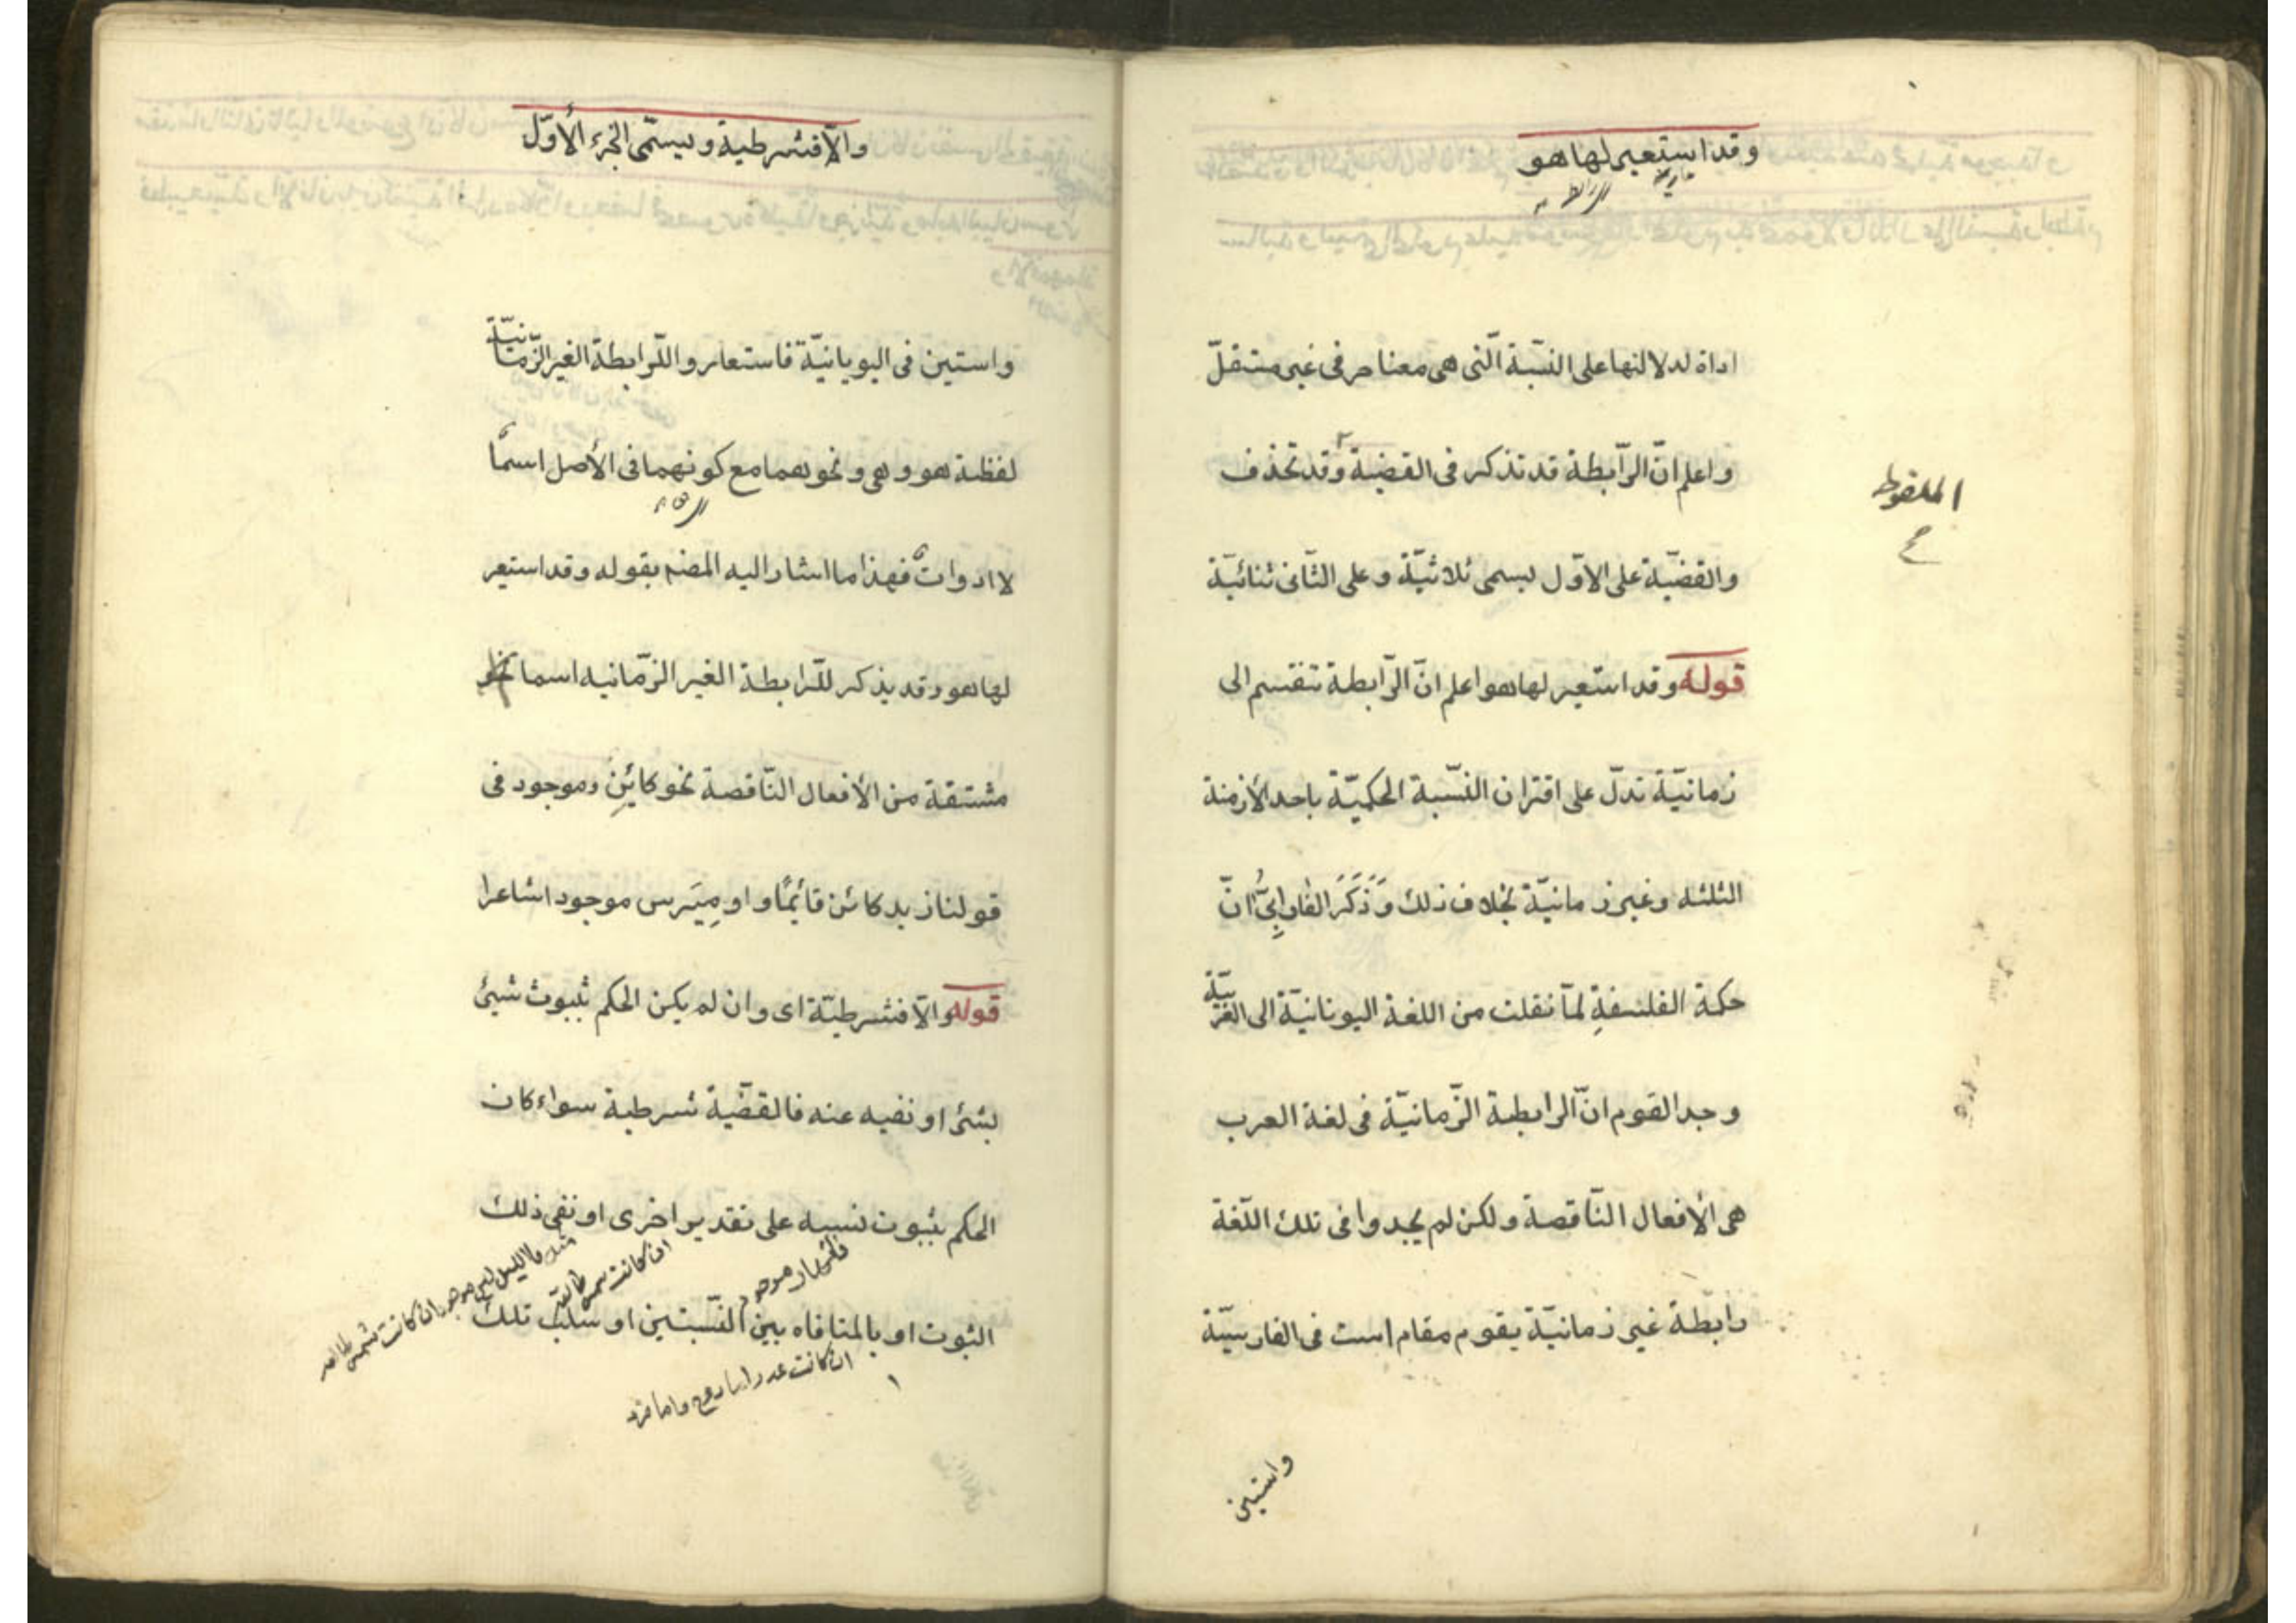 وقد استعير لها هو
اداة لدلالتها على النسبة الّتى هى معنا حرفى غير مستقلّ
واعلم انّ الرّابطة قد تذكر فى القضية وقد تحذف
الملفوظ
والقضيّة على الاوّل يسمى ثلاثيّة وعلى الثّانى ثنائيّة
قوله وقد استعير لها هو اعلم انّ الرّابطة تنقسم الى
زمانيّة تدلّ على اقتران النّسبة الحكميّة باحد الأزمنة
الثلثه وغير زمانيّة بخلاف ذلك وَذَكَرَ الفارابىّ انّ
حكمة الفلسفةِ لمّا نقلت من اللغة اليونانيّة الى العربيّة
وجد القوم انّ الرابطة الزّمانيّة فى لغة العرب
هى الأفعال النّاقصة ولكن لم يجدوا فى تلك اللّغة
رابطة غير زمانيّة يقوم مقام است فى الفارسيّة
واستين
والّا فشرطية ويسمّى الجزء الأوّل
واستين فى اليويانيّة فاستعاروا للّرابطة الغير الزّمانيّة
لفظة هو وهى ونحوهما مع كونهما فى الأصل اسمًا
لا ادوات فهذا ما اشار اليه المصنم بقوله وقد استعير
لها هو وقد يذكر للرّابطة الغير الزّمانيه اسما
مشتقة من الأفعال النّاقصة نحو كائِنِ وموجود فى
قولنا زيد كائن قائمًا و اومِيَرس موجود اشاعرا
قوله والّا فشرطيّة اى وان لم يكن الحكم ثبوت شيئ
بشئ او نفيه عنه فالقضّية شرطية سواء كان
الحكم بثبوت نسبه على تقدير اخرى او نفى ذلك
فالنهار موجود
ان كانت شمس طالعة
فالليل ليس موجود ان كانت شمس طالعه
الثبوت او بالمنافاه بين النّسبتين او سلب تلك